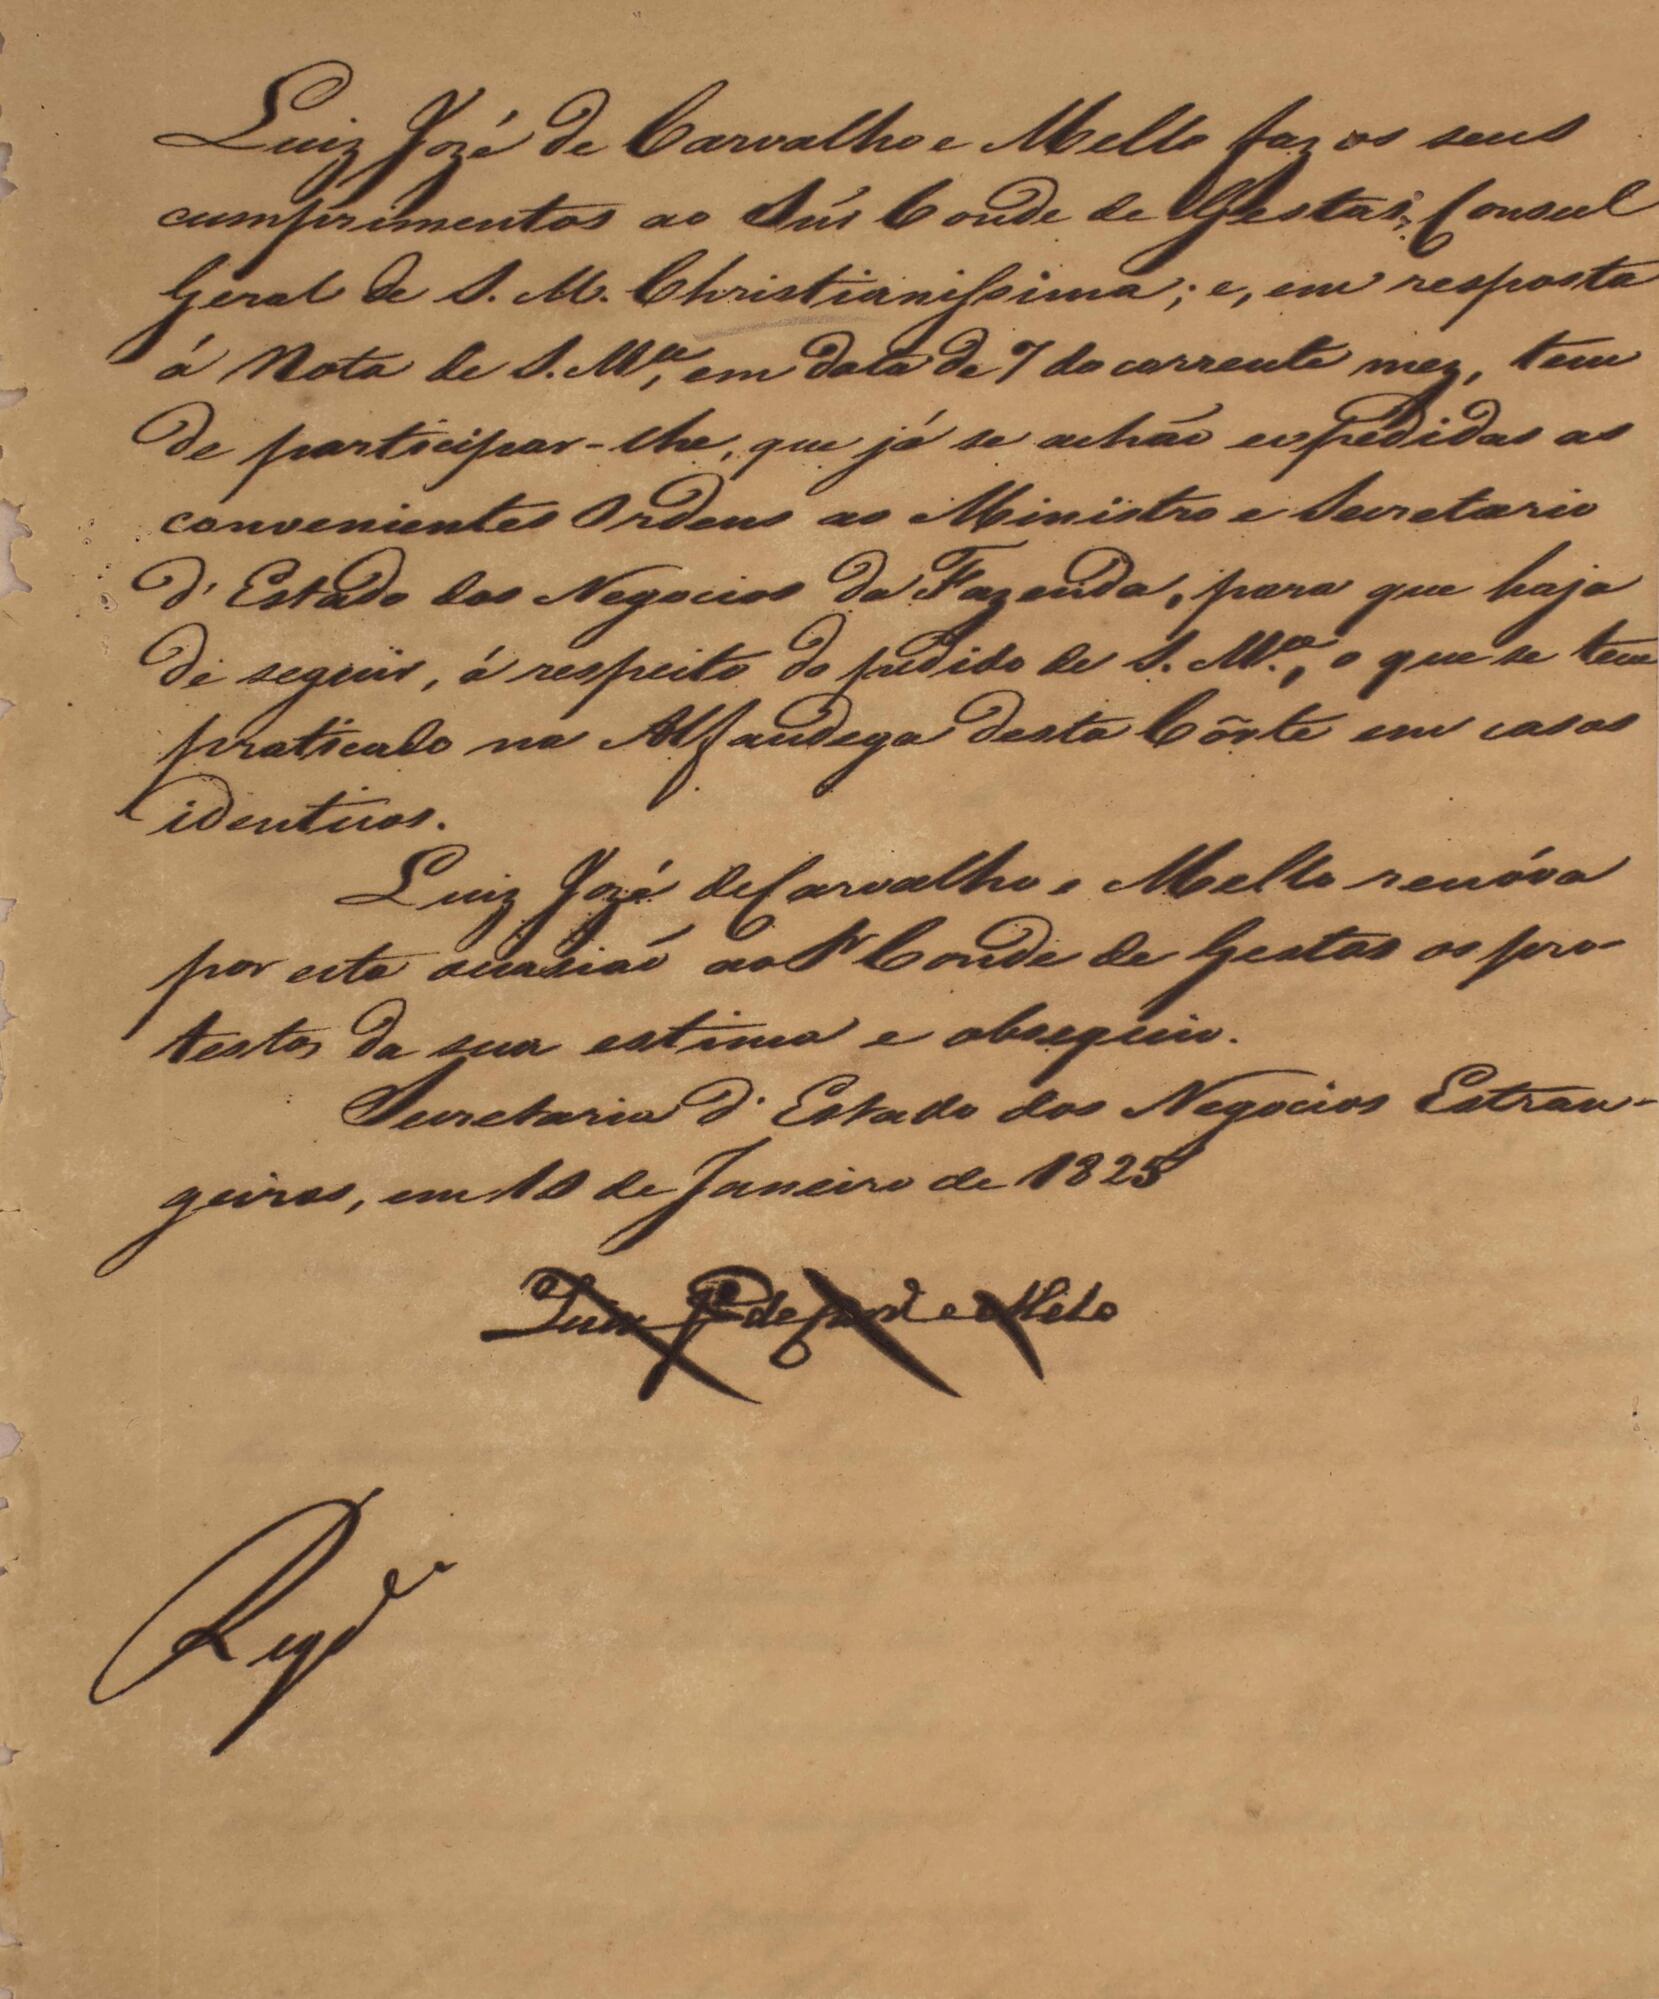 Luiz Jozé de Carvalho e Mello faz os seus
cumprimentos ao Snr Conde de Gestas, Consul
Geral de S. M. Christianissima; e, em resposta
á Nota de S. M.ce, em data de 7 do corrente mez, tem
de participar-lhe, que já se achão expedidas as
convenientes Ordens ao Ministro e Secretario
d' Estado dos Negocios da Fazenda, para que haja
de seguir, á respeito do pedido de S. M.ce, o que se tem
praticado na Alfandega desta Côrte em casos
identicos.
Luiz Jozé de Carvalho e Mello renóva
por esta occasião ao Sr Conde de Gestas os pro-
testos da sua estima e obsequio.
Secretaria d' Estado dos Negocios Estran-
geiros, em de Janeiro de 1825
Luiz Jé de Carvº e Mello
Regda